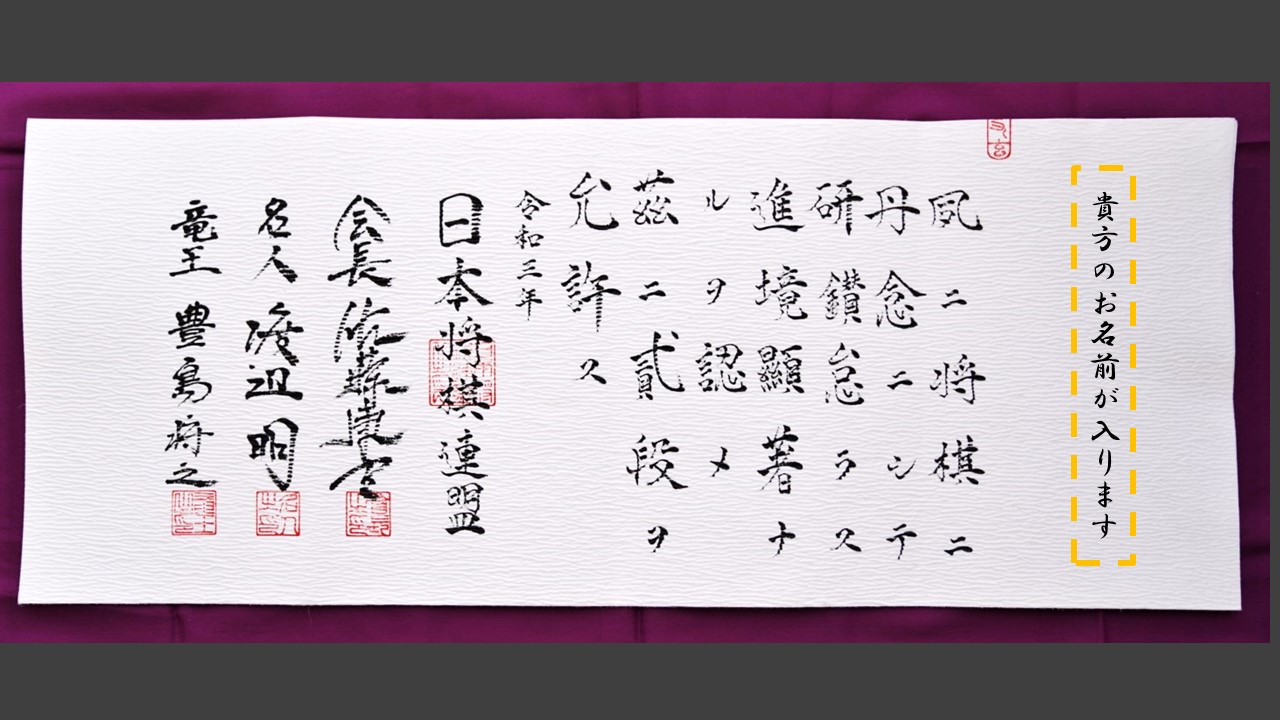 貴方のお名前が入ります
夙ニ将棋ニ
丹念ニシテ
研鑽怠ラス
進境顯著ナ
ルヲ認メ
茲ニ貳段ヲ
允許ス
令和三年
日本将棋連盟
会長 佐藤康光
名人 渡辺明
竜王 豊島将之